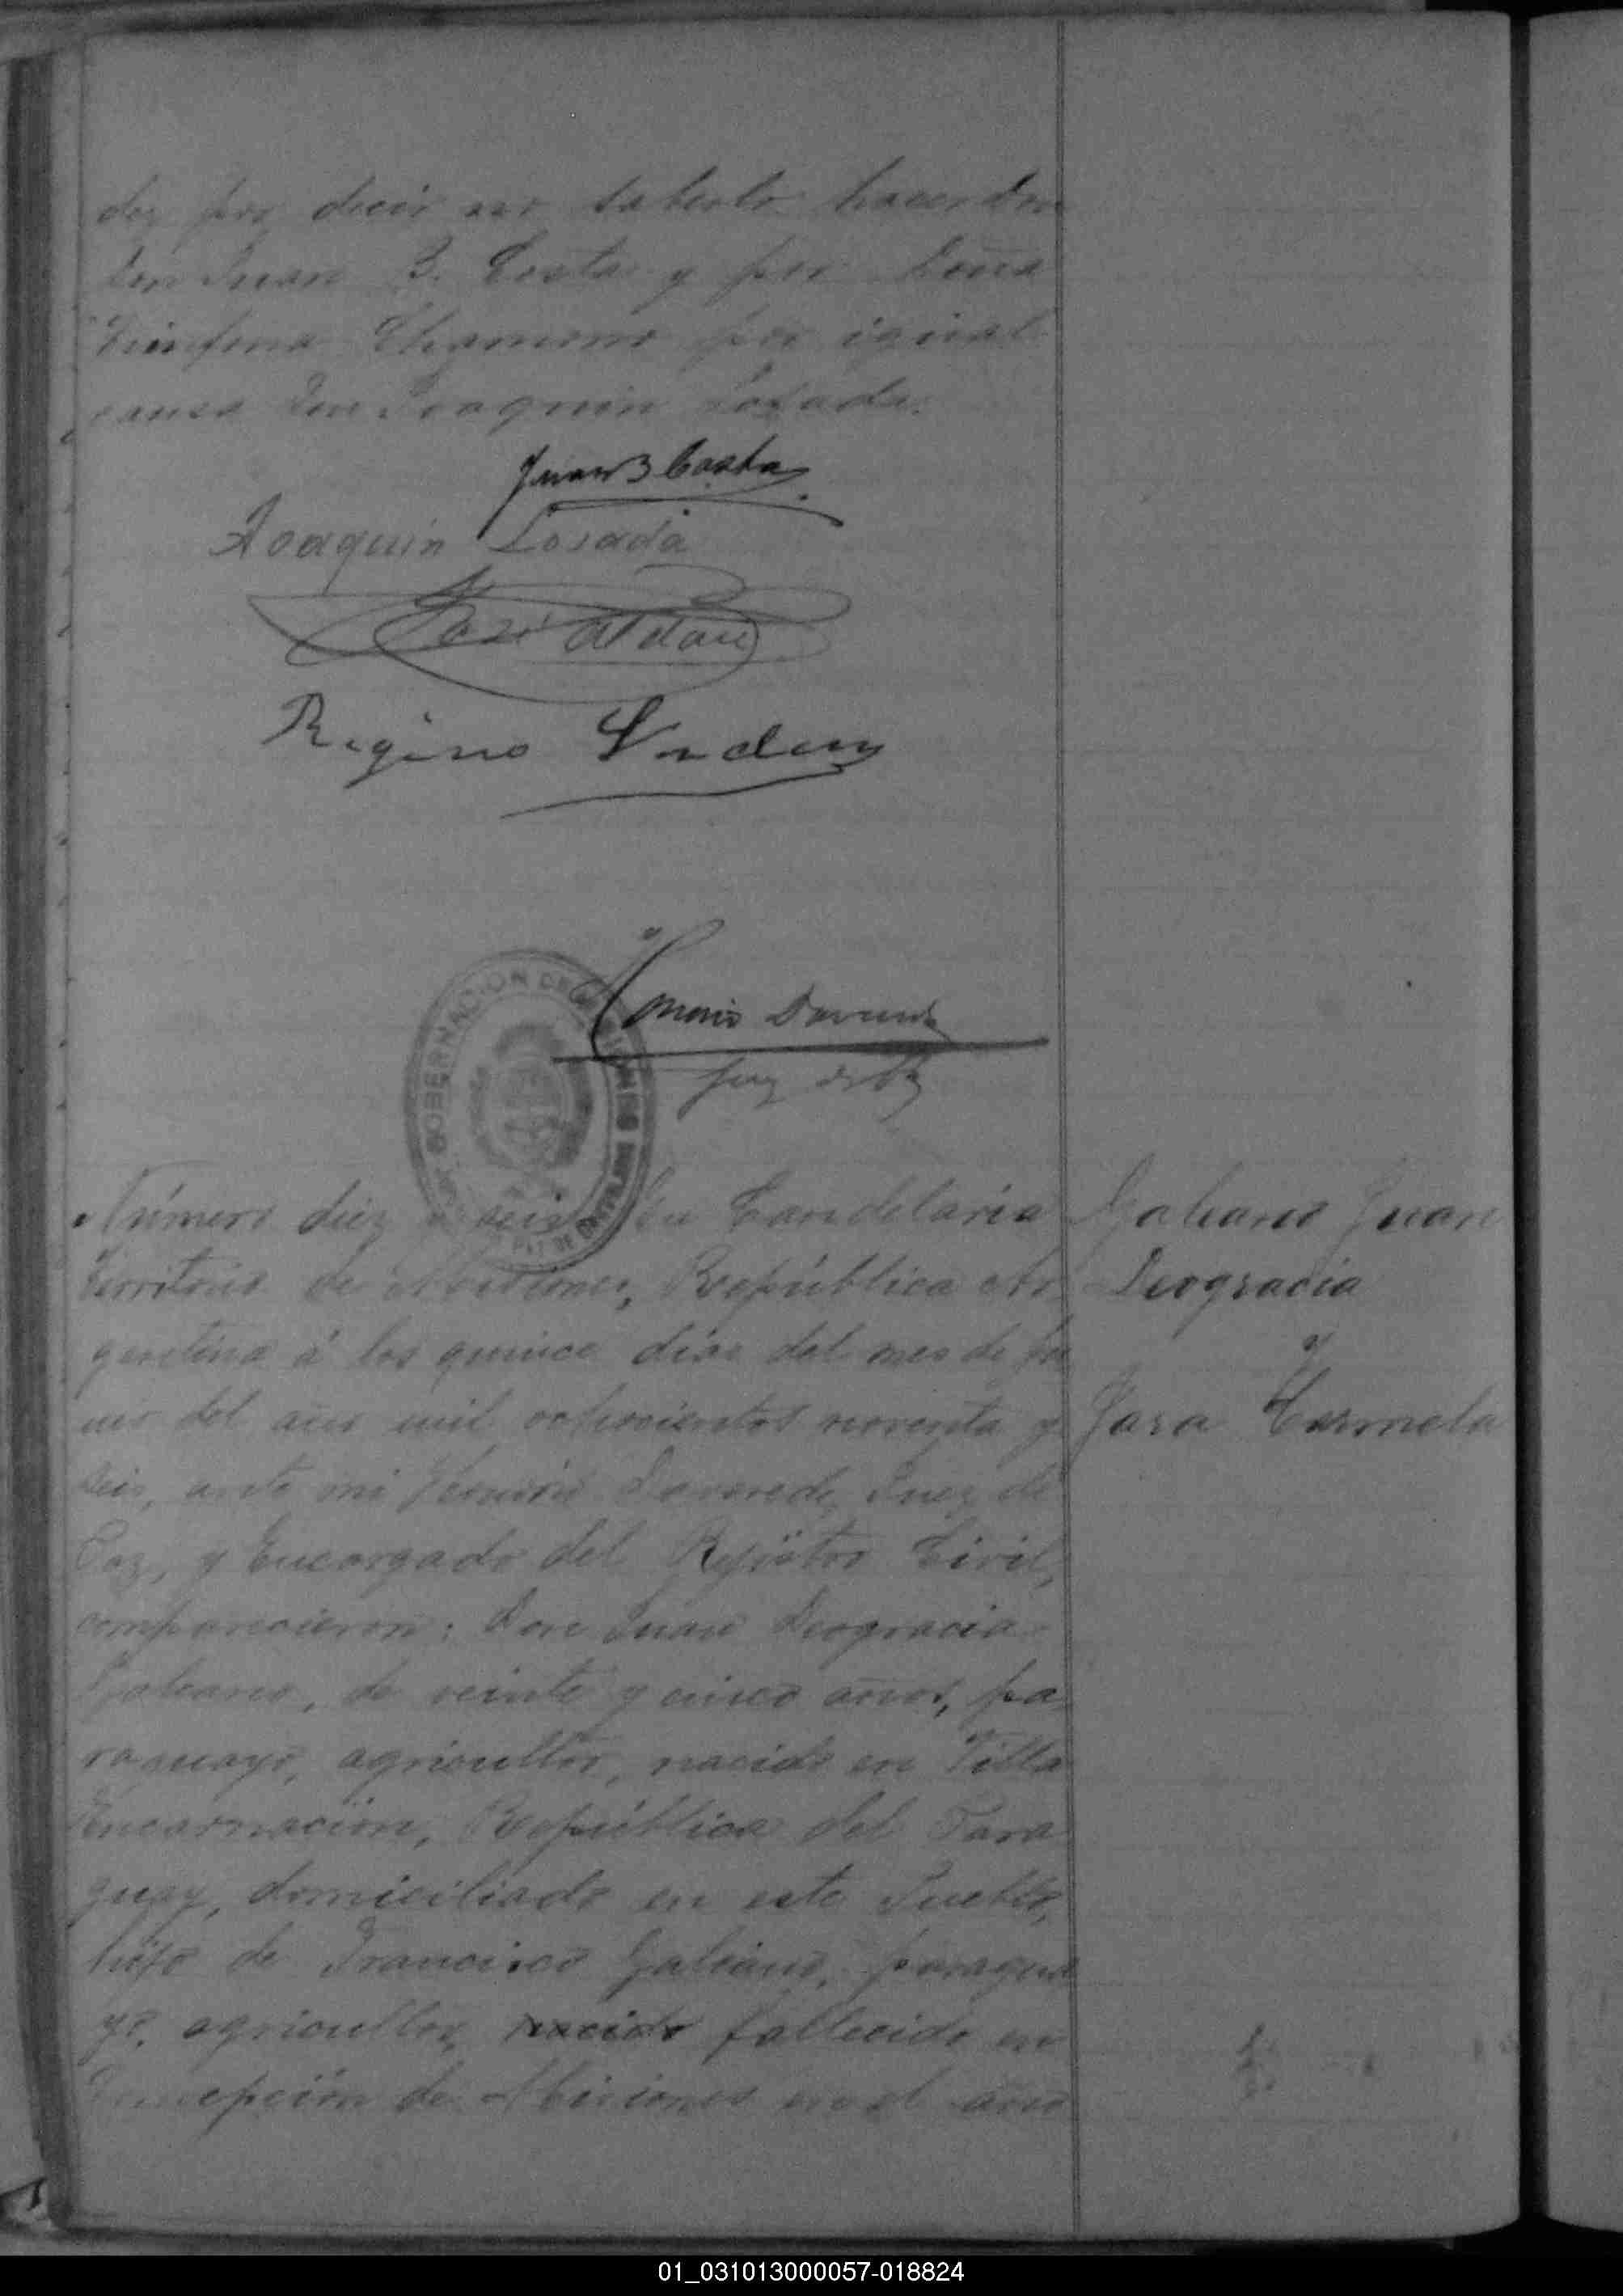 dez por decir no saberlo hacer Don
Don Juan B. Costa y por Doña
Chamorro por igual
causa Don Joaquin Losada.
Juan B Costa
Joaquin Losada
José Aldau
Regino
Juez de Paz
GOBERNACION DE MISIONES
Número diez y seis En Candelaria
Territorio de Misiones, República Ar
gentina á los quince dias del mes de Ju
nio del año mil ochocientos noventa y
seis, ante mi Juez de
Paz, y Encargado del Rejistro Civil,
comparecieron: Don Juan Deogracia
Galeano, de veinte y cinco años, pa
raguayo, agricultor, nacido en Villa
Encarnacion, República del Para
guay, domiciliado en este Pueblo,
hijo de Francisco Galeano, paragua
yo, agricultor, nacido fallecido en
Concepcion de Misiones en el año
Galeano Juan
Deogracia
y
Jara Carmela
01_031013000057-018824